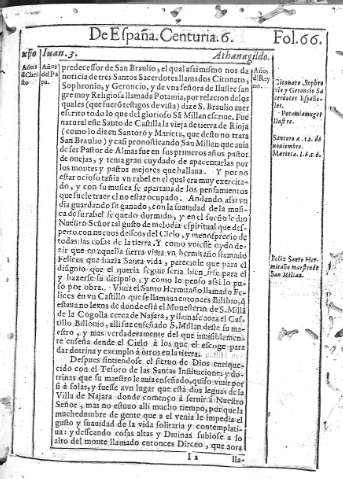 De España. Centuria. 6. Fol. 66.
Iuan. 3. Athanagildo.
predecessor de San Braulio, el qual assimismo nos da
noticia de tres Santos Sacerdotes llamados Citonato,
Sophronio, y Geroncio, y de vna señora de Ilustre san
gre muy Religiosa llamada Potamia, por relacion de los
quales (que fuerō testigos de vista) dize S. Braulio auer
escrito todo lo que del glorioso Sā Millan escriue. Fue
natural este Santo de Castilla la vieja de tierra de Rioja
(como lo dizen Santoro y Marieta, que desto no trata
San Braulio) y casi pronosticando San Millan que auia
de ser Pastor de Almas fue en sus primeros años pastor
de ouejas, y tenia gran cuydado de apacentarlas por
los montes y pastos mejores que hallaua. Y por no
estar ocioso tañia vn rabel en el qual era muy exercita-
do, y con su musica se apartaua de los pensamientos
que suele traer el no estar ocupado. Andando assi vn
dia guardando su ganado, con la suauidad de la musi-
ca de su rabel se quedo dormido, y en el sueño le dio
Nuestro Señor tal gusto de melodia espiritual que des-
perto con nueuos desseos del Cielo, y menosprecio de
todas las cosas de la tierra. Y como vuiesse oydo de-
zir que en aquella sierra viuia vn hermitaño llamado
Felices que hazia Santa vida, pareciole que para el
disignio que el queria seguir seria bien irse para el
y hazerse su dicipulo, y como lo penso assi lo pu-
so por obra. Viuia el Santo Hermitaño llamado Fe-
lices en vn Castillo que se llamaua entonces Bilibio,
estaua no lexos de donde está el Monesterio de S. Millā
de la Cogolla cerca de Najara, y llamase aora el Cas-
tillo Billouio, alli fue enseñado S. Millan deste su ma-
estro, y mas verdaderamente del que inuisiblemen-
te enseña desde el Cielo à los que el escoge para
dar dotrina y exemplo à otros en la tierra.
Despues sintiendose el sieruo de Dios enrique-
cido con el Tesoro de las Santas Instituciones y do-
trinas que su maestro le auia enseñado, quiso viuir por
si à solas, y fuesse a vn lugar que está dos leguas de la
Villa de Najara donde començo à seruir à Nuestro
Señor, mas no estuuo alli mucho tiempo, porque la
muchedumbre de gente que a el venia le impedia el
gusto y suauidad de la vida solitaria y contemplati-
ua: y desseando cosas altas y Diuinas subiose a lo
alto del monte llamado entonces Dirceo, que aora
I 2 lla-
Citonato, Sophro
nio y Geroncio Sā
cerdotes Españo-
les.
Potamia muger
Ilustre.
Santoro a. 12. de
nouiembre.
Marieta. l. 6. c. 6.
Felix Santo Her-
mitaño maestro de
San Millan.